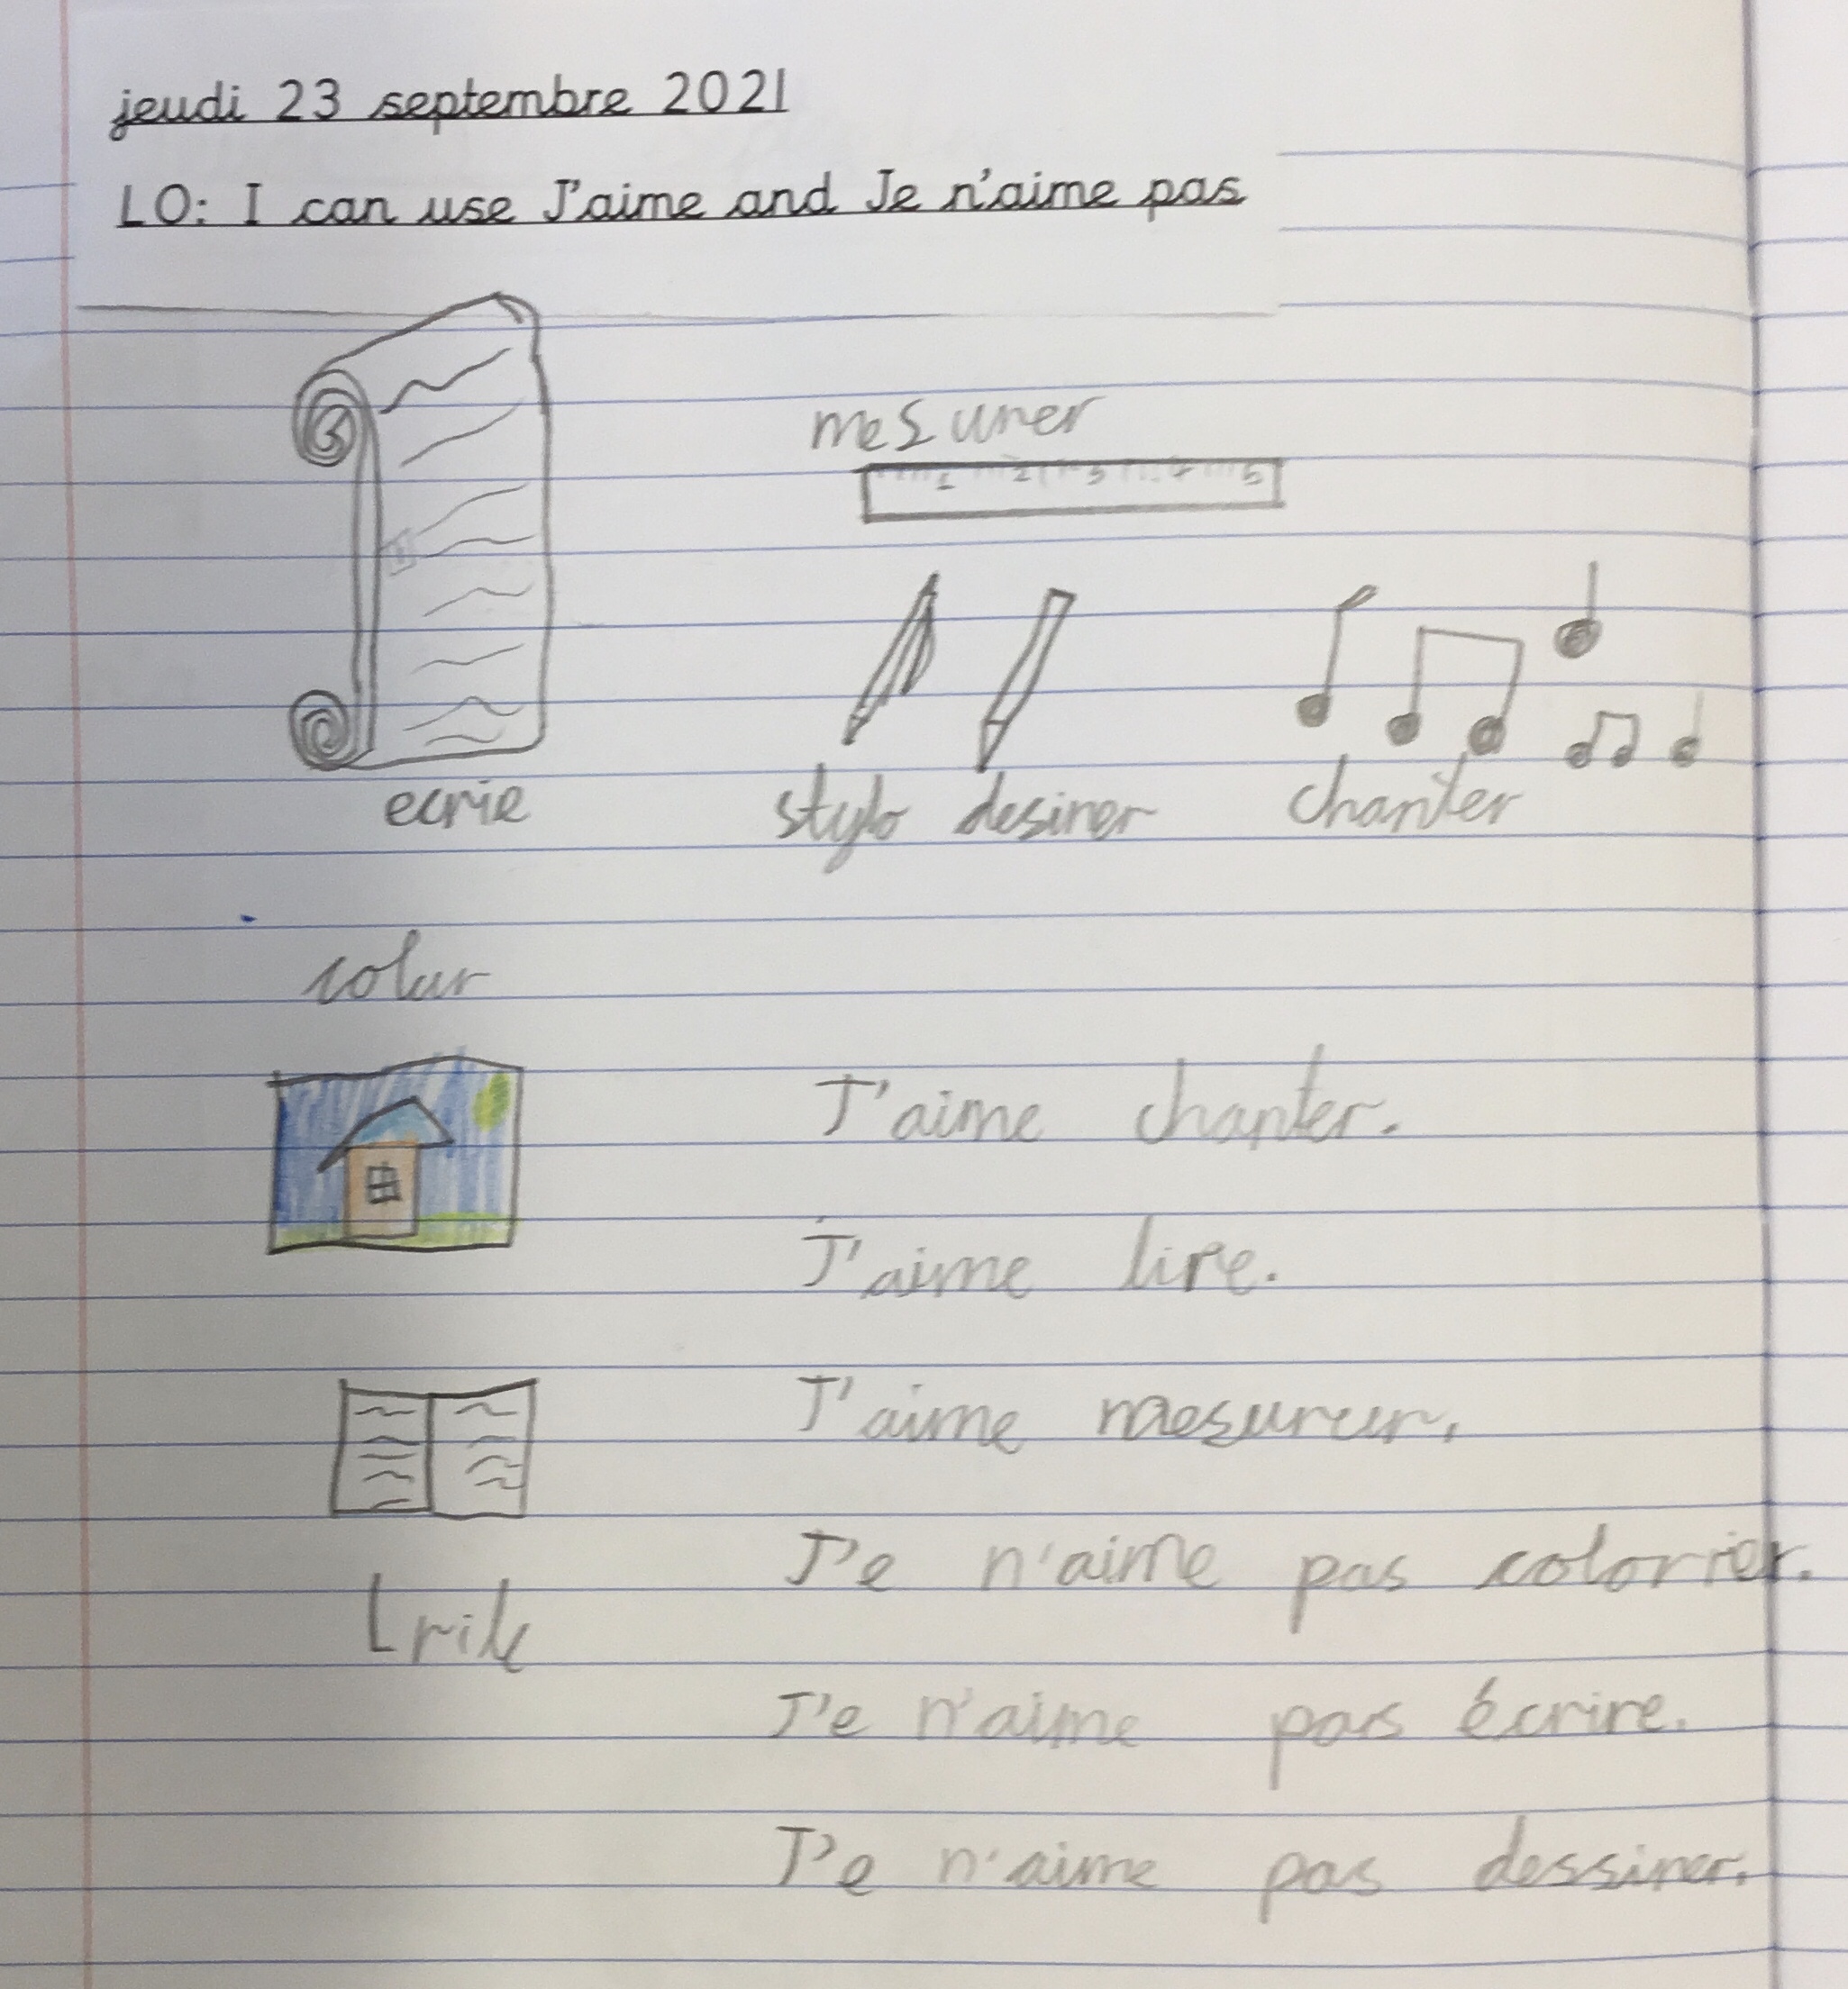 jeudi 23 septembre 2021
LO: I can use J'aime and Je n'aime pas
mesurer
1 2 3 4 5
ecrie
stylo desiner chanter
colur
J'aime chanter.
J'aime lire.
J'aime mesurer.
J'e n'aime pas colorier.
J'e n'aime pas écrire.
J'e n'aime pas dessiner.